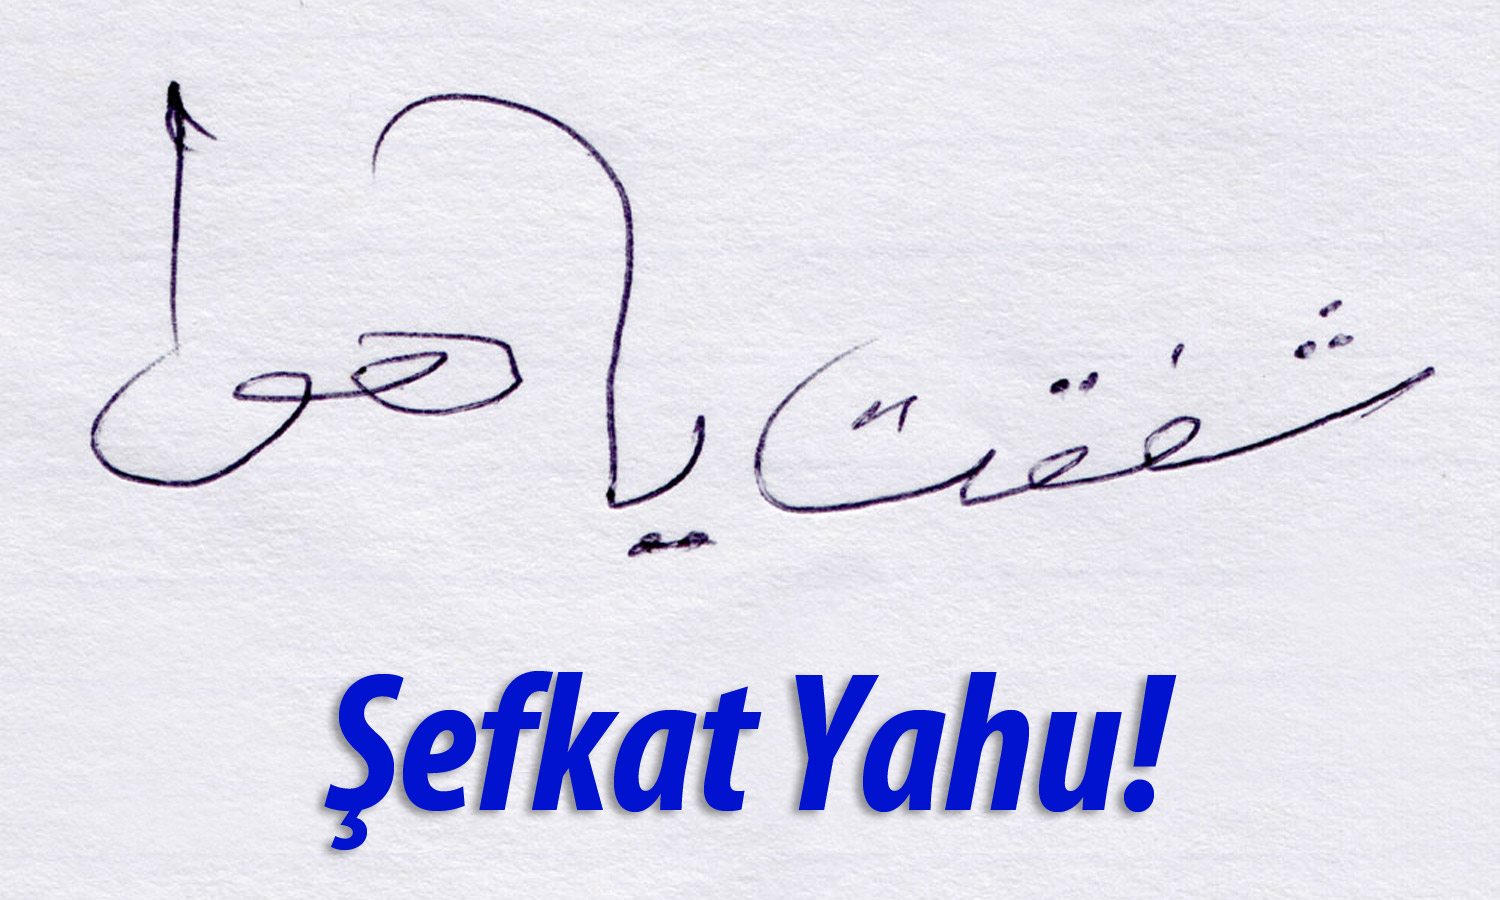 شفقت ياهو
Şefkat Yahu!